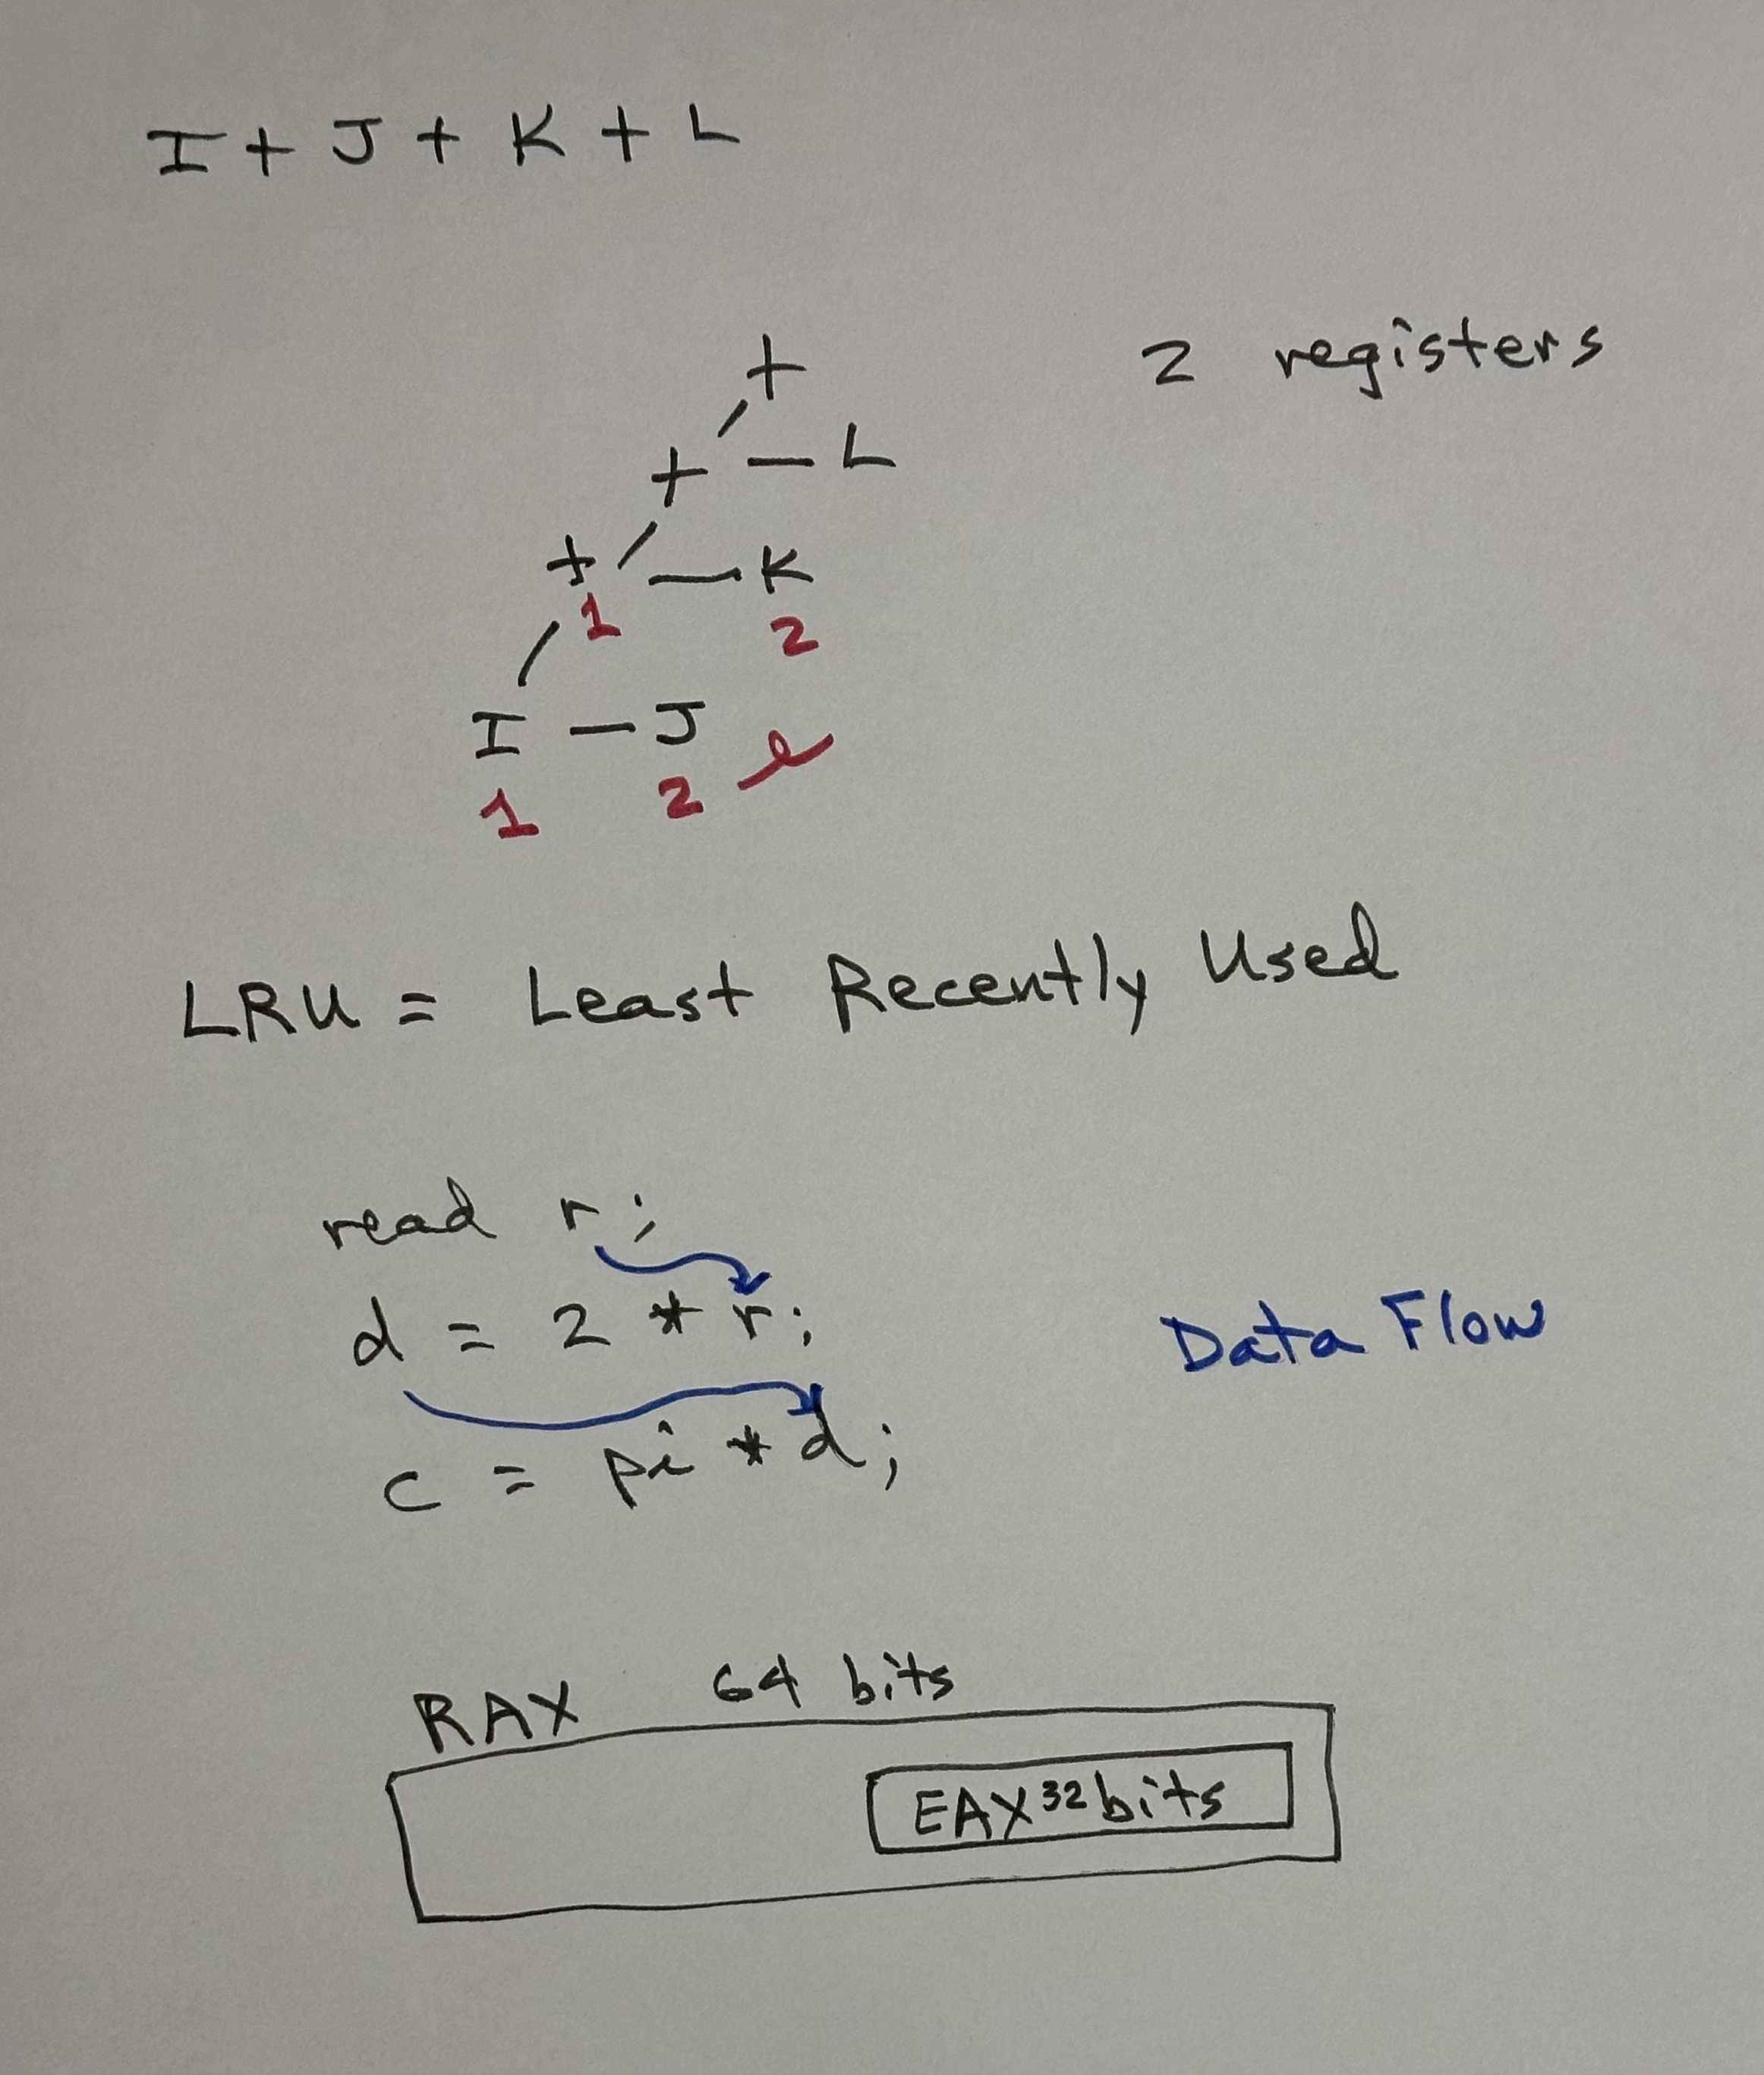 I + J + K + L
+ 2 registers
+ — L
+ — K
1 2
I — J
1 2
LRU = Least Recently Used
read r;
d = 2 * r;
Data Flow
c = pi * d;
RAX 64 bits
EAX 32 bits